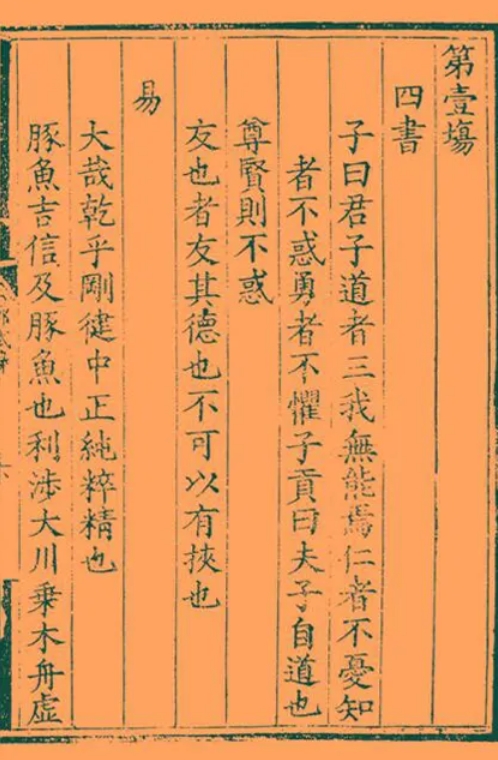 第壹塲
四書
子曰君子道者三我無能焉仁者不憂知
者不惑勇者不懼子貢曰夫子自道也
尊賢則不惑
友也者友其德也不可以有挾也
易
大哉乾乎剛健中正純粹精也
豚魚吉信及豚魚也利涉大川乗木舟虛